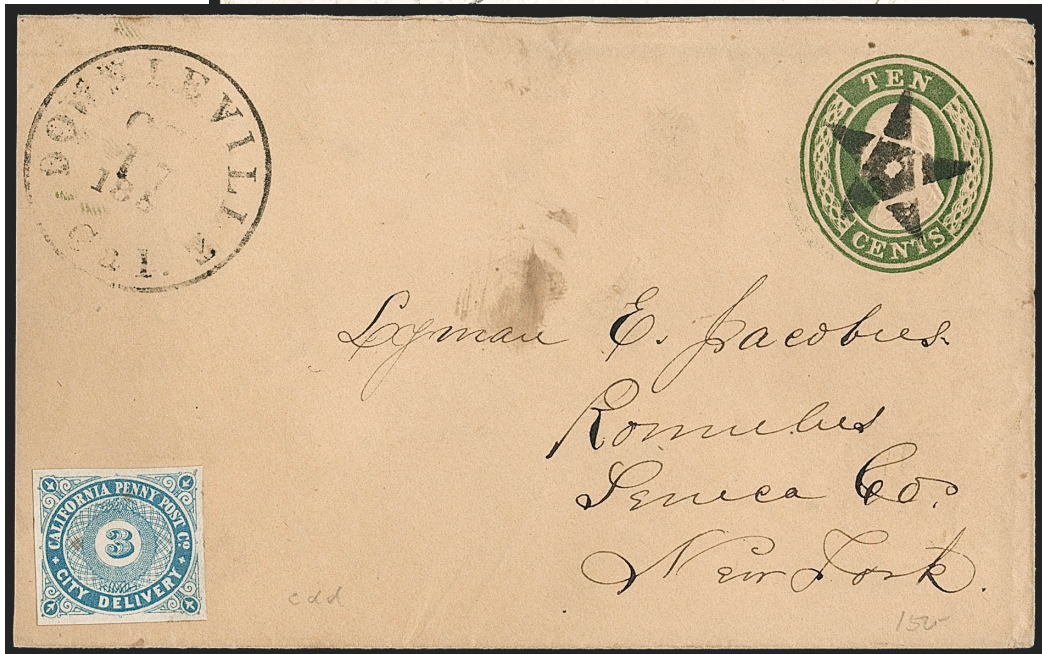 DOWNIEVILLE
17
Cal.
TEN
CENTS
Lyman E. Jacobus
Romulus
Seneca Co.
New York.
CALIFORNIA PENNY POST Co.
3
CITY DELIVERY
cdd
150-